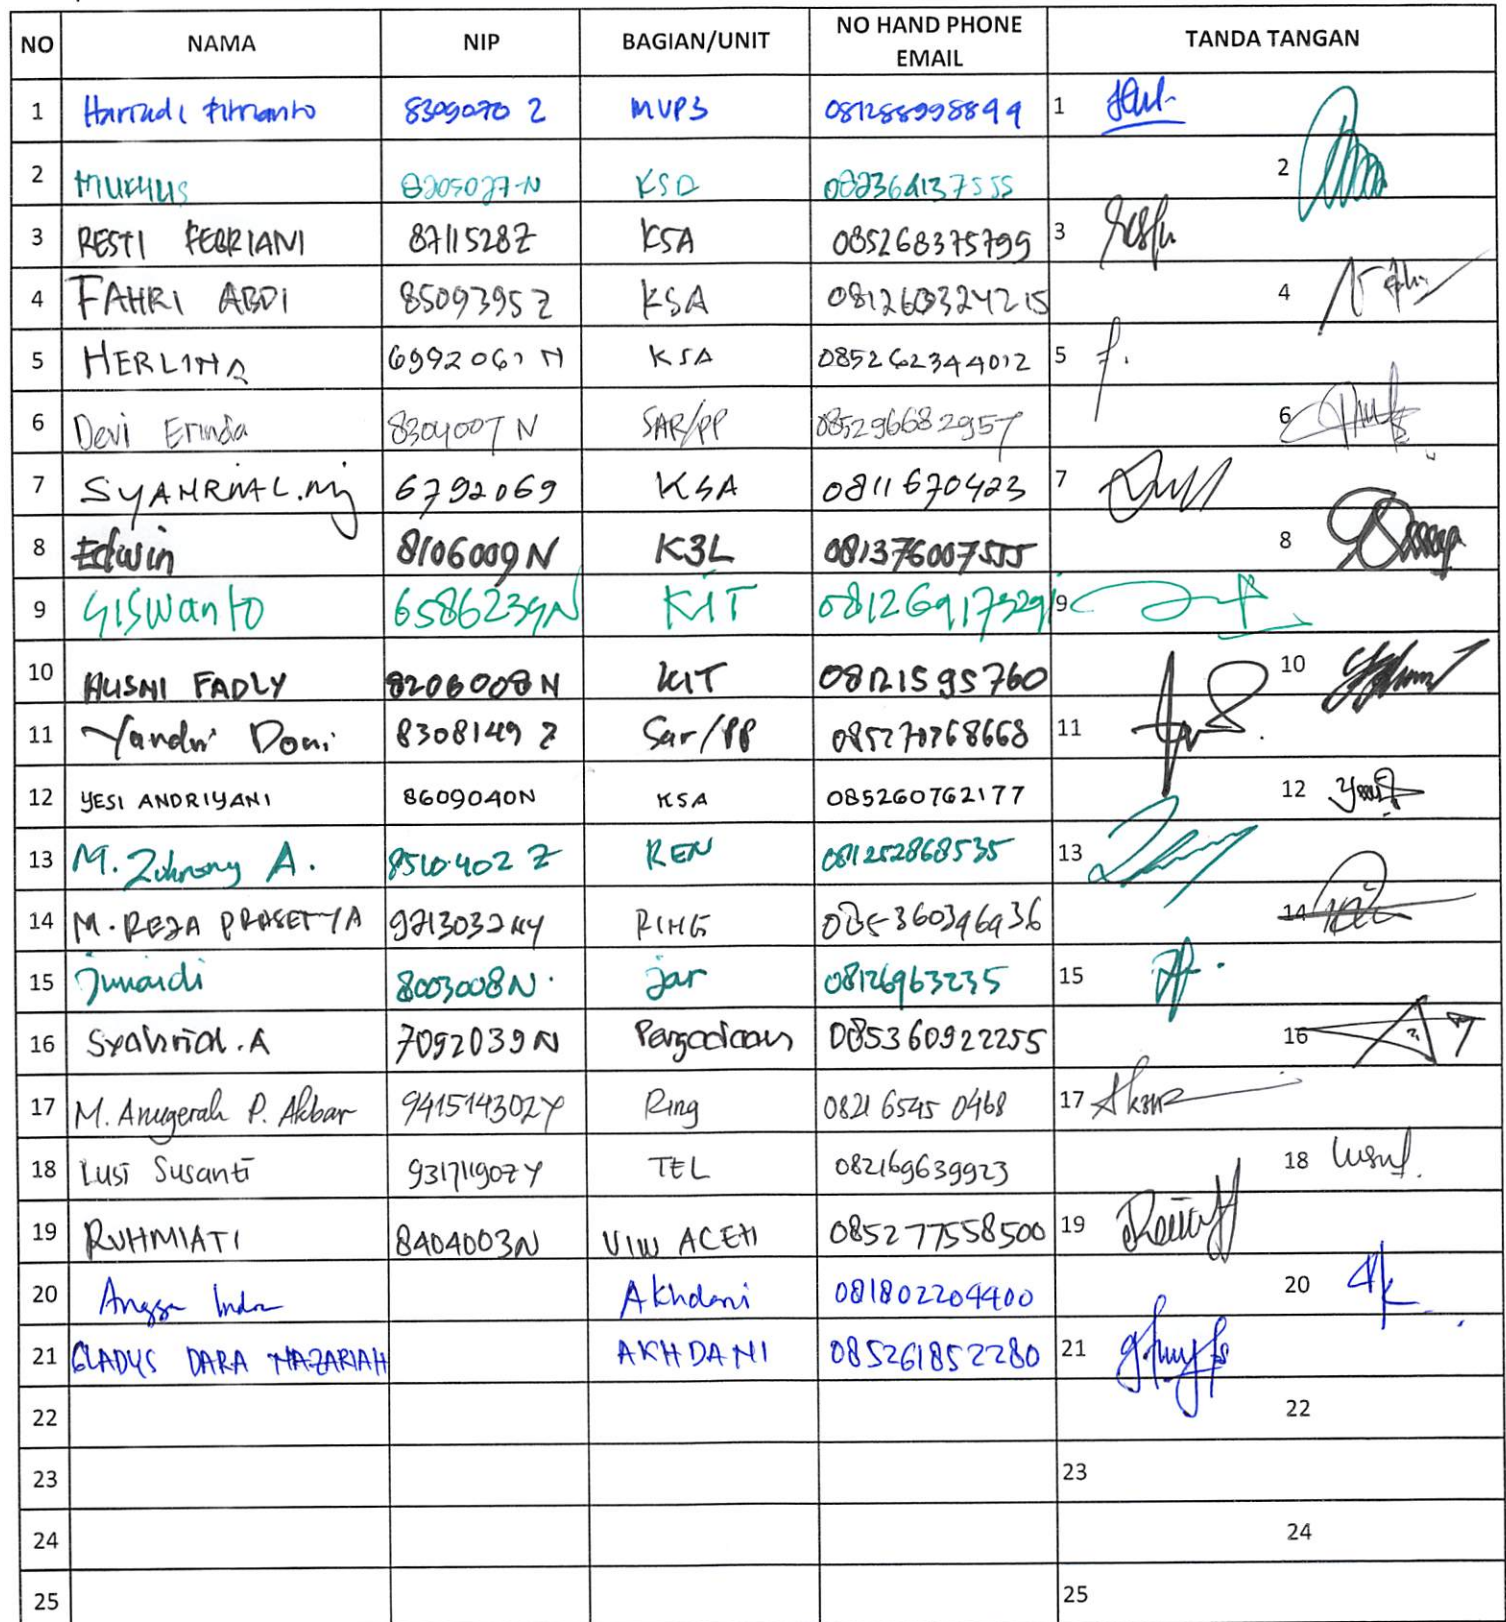 NO NAMA NIP BAGIAN/UNIT NO HAND PHONE TANDA TANGAN
EMAIL
1 8309070 Z MUP3 081288998899 1
2 MUKHLIS 8205027-N 082364137555 2
3 RESTI FEBRIANI 8711528Z KSA 085268375799 3
4 FAHRI ABDI 8509395Z KSA 4
5 HERLINA 6992061 N KSA 085262344012 5
6 Devi Erinda 8304007 N SAR/PP 085296682957 6
7 6792069 KSA 0811670423 7
8 Edwin 8106009N K3L 081376007555 8
9 Giswanto 6586239N KIT 9
10 HUSNI FADLY 8206008N KIT 08121595760 10
11 Yandri Doni 8308149 Z Sar/PP 085270768668 11
12 YESI ANDRIYANI 8609040N KSA 085260762177 12
13 M. A. 8510402 Z REN 081252868535 13
14 M. REZA PRASETYA RING 085360396936 14
15 Junaidi 8003008N. jar 08126963235 15
16 Syahrial.A 7092039N Pengadaan 085360922255 16
17 M. Anugerah P. Akbar 94151430ZY Ring 0821 6545 0468 17
18 Lusi Susanti 93171190ZY TEL 082169639923 18
19 RUHMIATI 8404003N UIW ACEH 085277558500 19
20 Angga Indra Akhdani 081802204400 20
21 GLADYS DARA MAZARIAH AKHDANI 085261852280 21
22 22
23 23
24 24
25 25